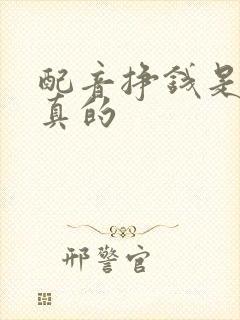 配音挣钱是
真的
邢警官